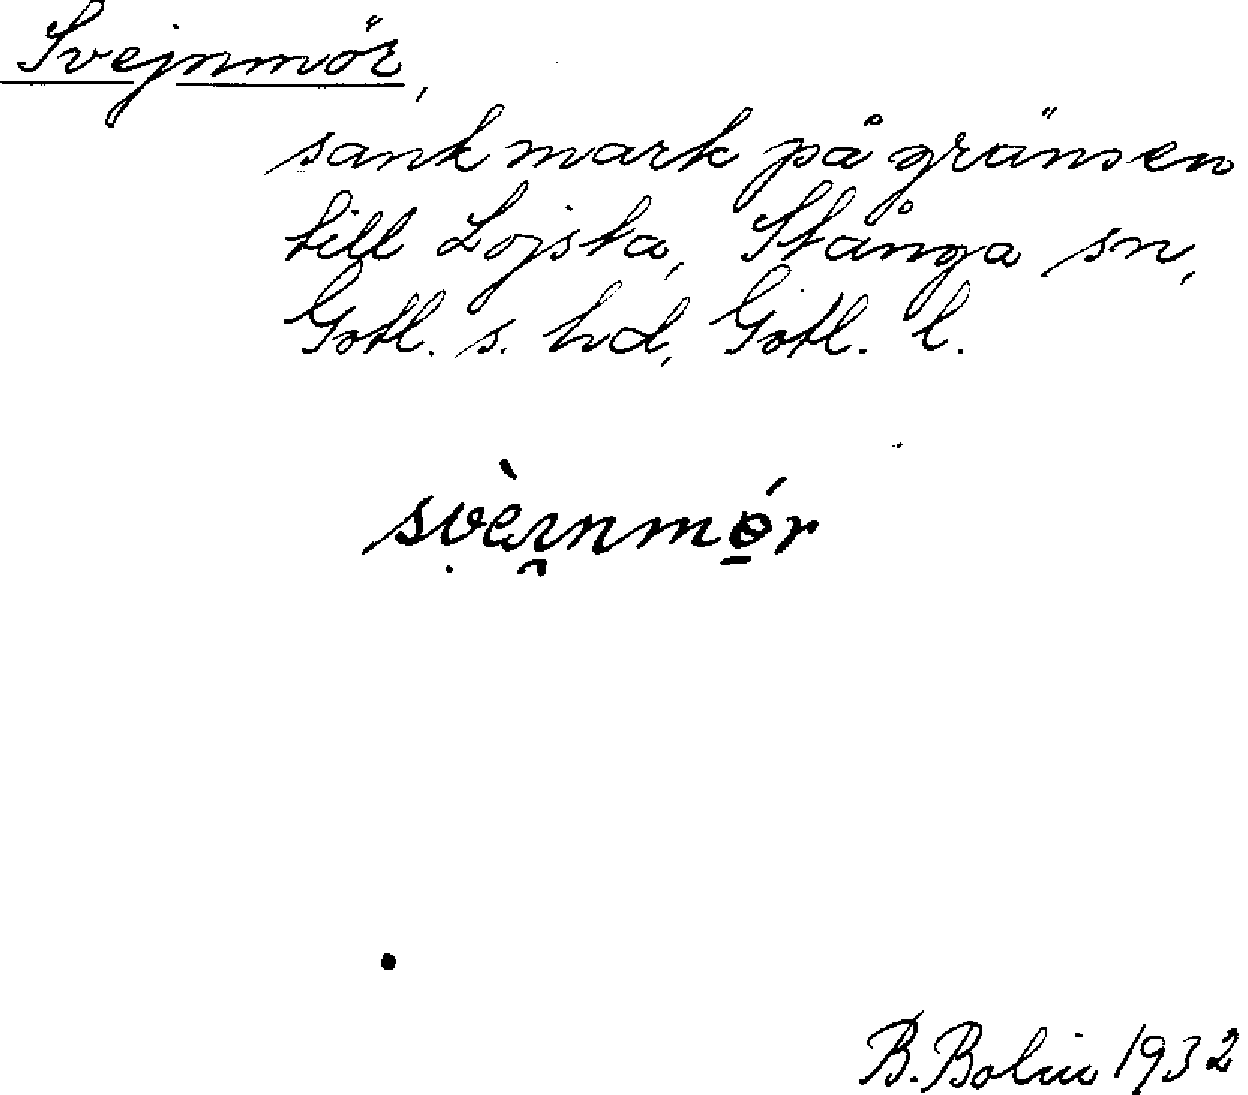 Svejnmör,
sank mark på gränsen
till Lojsta, Stånga sn,
Gotl. s. hd, Gotl. l.
B. Bolin 1932